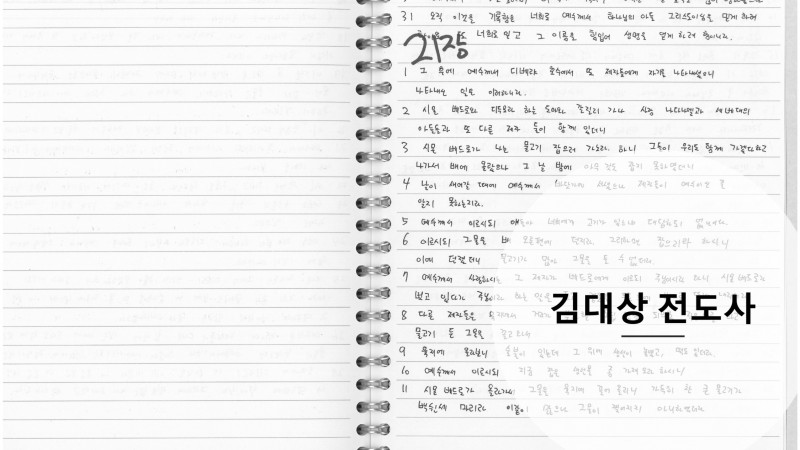 31 오직 이것을 기록함은 너희로 예수께서 하나님의 아들 그리스도이심을 믿게 하려
너희로 믿고 그 이름을 힘입어 생명을 얻게 하려 함이니라.
21장
1 그 후에 예수께서 디베랴 호수에서 또 제자들에게 자기를 나타내셨으니
나타내신 일은 이러하니라.
2 시몬 베드로와 디두모라 하는 도마와 갈릴리 가나 사람 나다나엘과 세베대의
아들들과 또 다른 제자 둘이 함께 있더니
3 시몬 베드로가 나는 물고기 잡으러 가노라 하니 그들이 우리도 함께 가겠다하고
나가서 배에 올랐으나 그 날 밤에 아무 것도 잡지 못하였더니
4 날이 새어갈 때에 예수께서 바닷가에 서셨으나 제자들이 예수이신 줄
알지 못하는지라.
5 예수께서 이르시되 얘들아 너희에게 고기가 있느냐 대답하되 없나이다.
6 이르시되 그물을 배 오른편에 던지라 그리하면 잡으리라 하시니
이에 던졌더니 물고기가 많아 그물을 들 수 없더라
7 예수께서 사랑하시는 그 제자가 베드로에게 이르되 주님이시라 하니 시몬 베드로가
벗고 있다가 주님이라 하는 말을
8 다른 제자들은 육지에서
물고기 든 그물을 끌고 와서
9 육지에 올라보니 숯불이 있는데 그 위에 생선이 놓였고 떡도 있더라.
10 예수께서 이르시되 지금 잡은 생선을 좀 가져오라 하시니
11 시몬 베드로가 올라가서 그물을 육지에 끌어 올리니 가득히 찬 큰 물고기가
백쉰세 마리라 이같이 많으나 그물이 찢어지지 아니하였더라
김대상 전도사